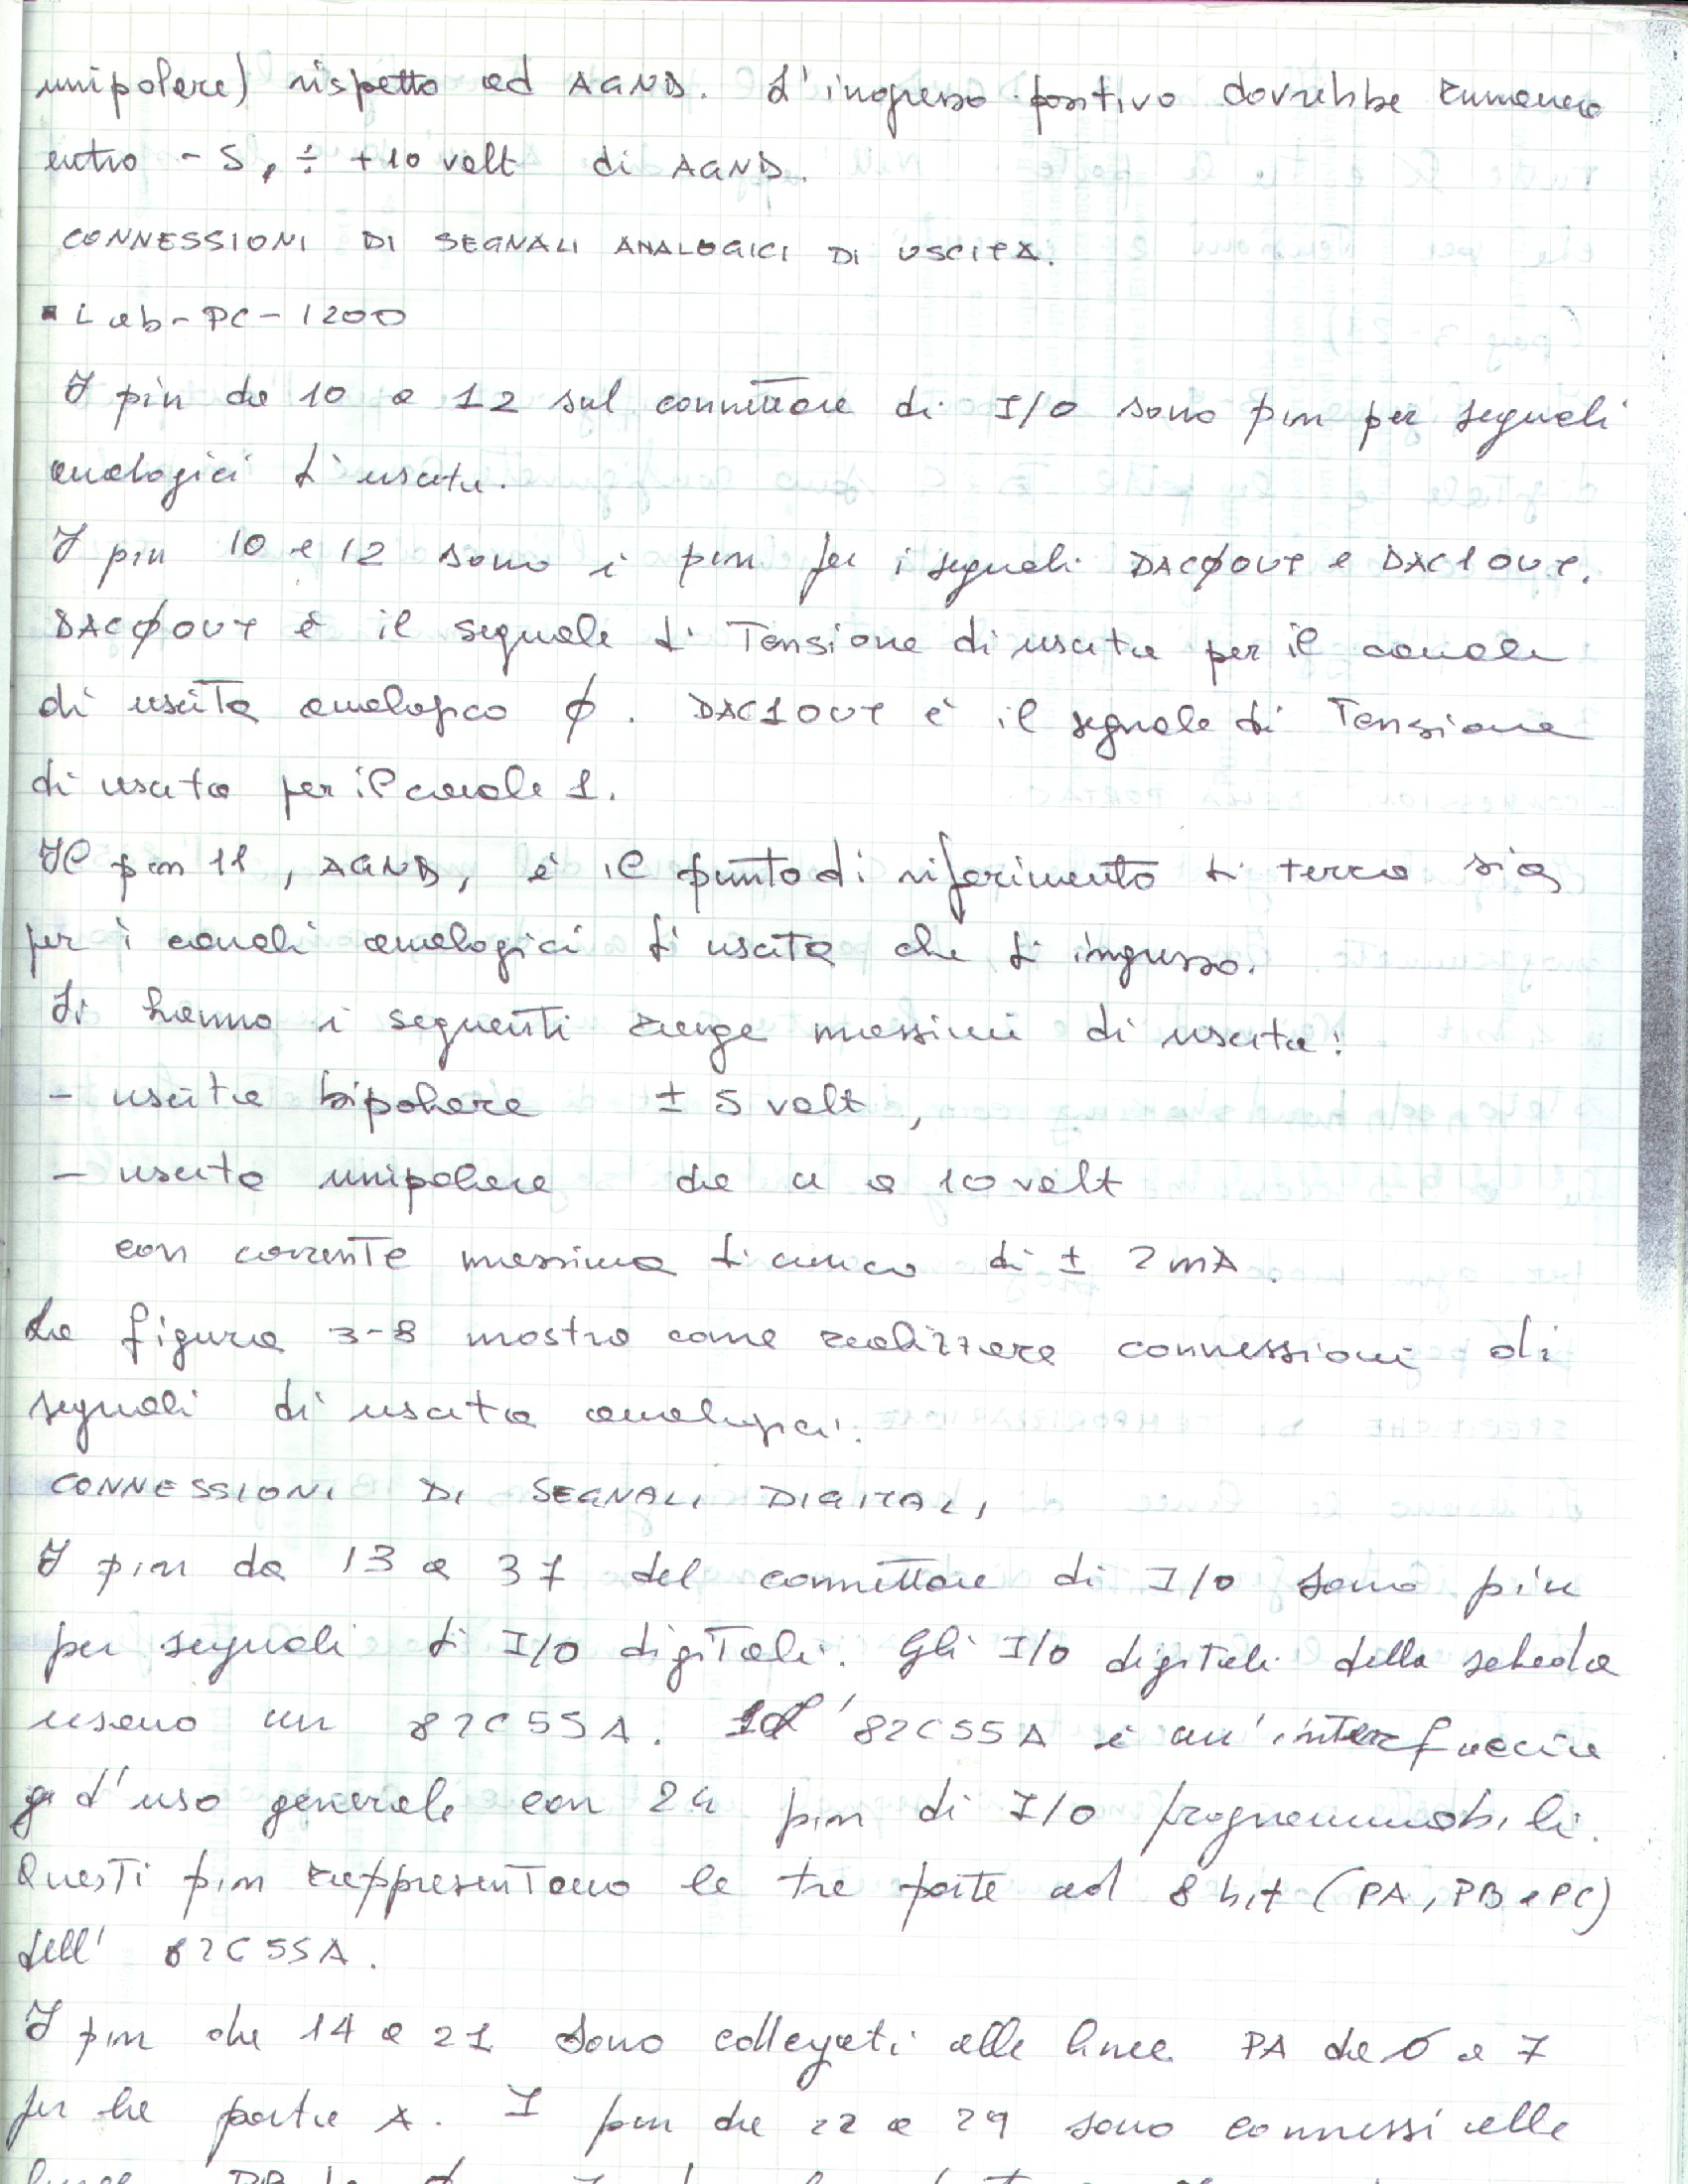 unipolare) rispetto ad AGND. L'ingresso positivo dovrebbe rimanere
entro -5, ÷ +10 volt di AGND.
CONNESSIONI DI SEGNALI ANALOGICI DI USCITA.
▪ Lab-PC-1200
I pin da 10 a 12 sul connettore di I/O sono pin per segnali
analogici di uscita.
I pin 10 e 12 sono i pin per i segnali DACØOUT e DAC1OUT.
DACØOUT è il segnale di Tensione di uscita per il canale
di uscita analogico Ø. DAC1OUT è il segnale di Tensione
di uscita per il canale 1.
Il pin 11, AGND, è il punto di riferimento di terra sia
per i canali analogici di uscita che di ingresso.
Si hanno i seguenti range massimi di uscita:
- uscita bipolare ± 5 volt,
- uscita unipolare da 0 a 10 volt
con corrente massima di carico di ± 2mA.
La figura 3-8 mostra come realizzare connessioni di
segnali di uscita analogici.
CONNESSIONI DI SEGNALI DIGITALI
I pin da 13 a 37 del connettore di I/O sono pin
per segnali di I/O digitali. Gli I/O digitali della scheda
usano un 82C55A. L'82C55A è un'interfaccia
d'uso generale con 24 pin di I/O programmabili.
Questi pin rappresentano le tre porte ad 8 bit (PA, PB e PC)
dell' 82C55A.
I pin da 14 a 21 sono collegati alle linee PA da 0 a 7
per la porta A. I pin da 22 a 29 sono connessi alle